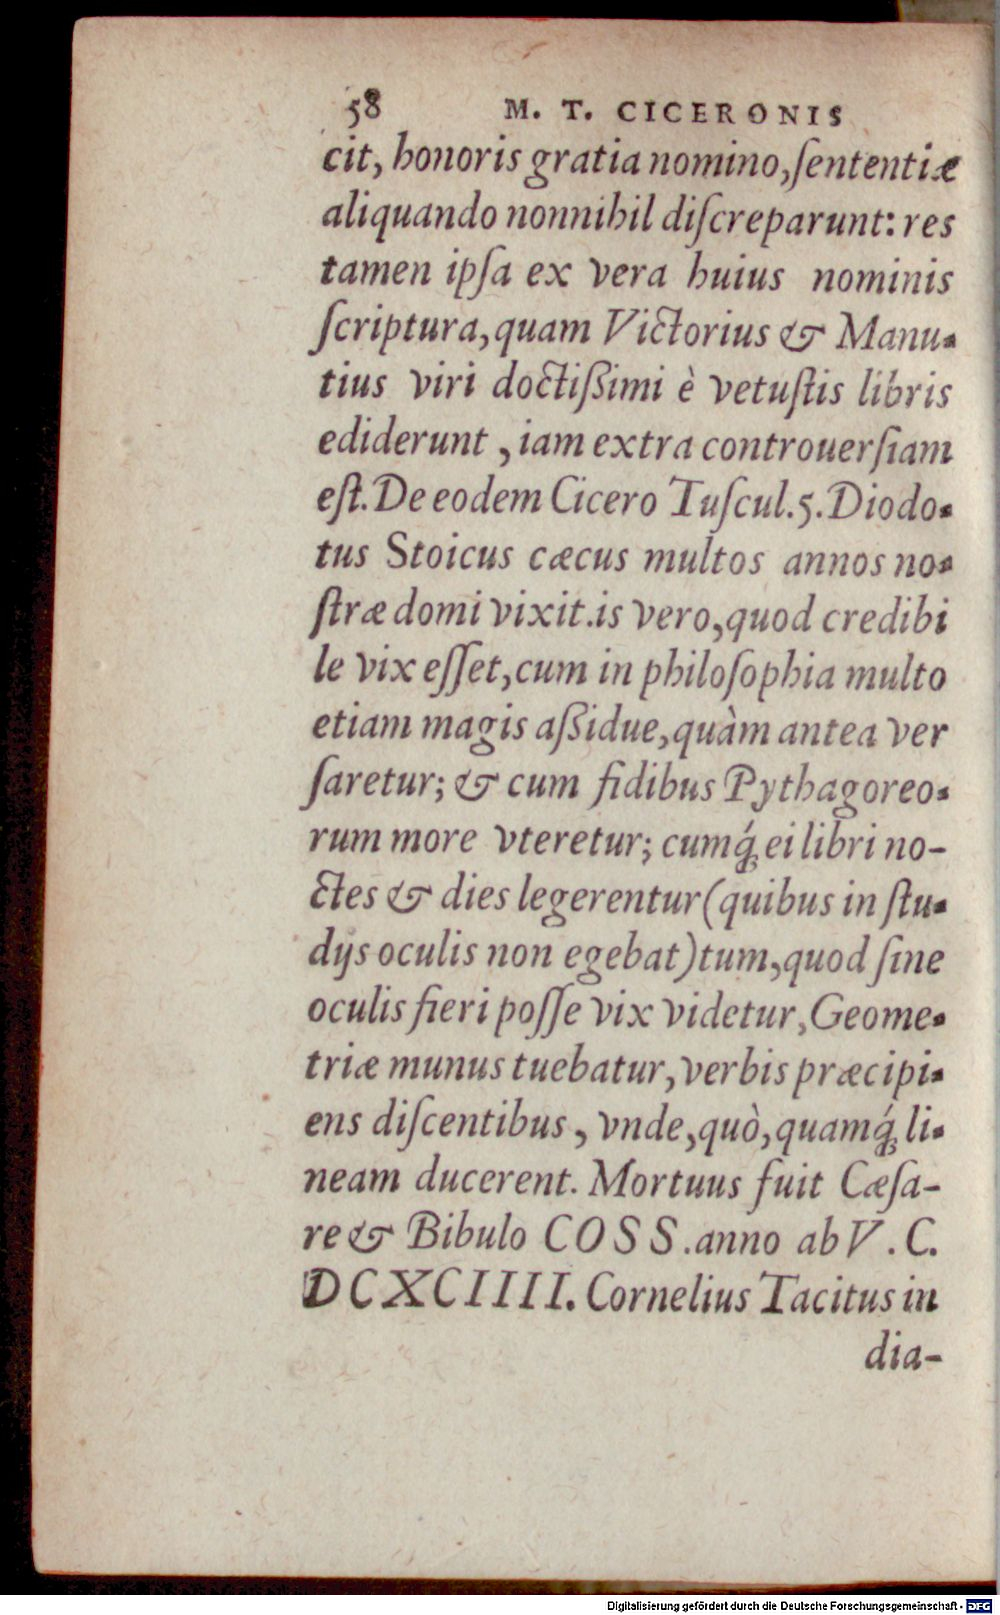 58 M. T. CICERONIS
cit, honoris gratia nomino, ſententiæ
aliquando nonnihil diſcreparunt: res
tamen ipſa ex vera huius nominis
ſcriptura, quam Victorius & Manu-
tius viri doctißimi è vetuſtis libris
ediderunt, iam extra controuerſiam
eſt. De eodem Cicero Tuſcul. 5. Diodo-
tus Stoicus cæcus multos annos no-
ſtræ domi vixit. is vero, quod credibi
le vix eſſet, cum in philoſophia multo
etiam magis aßidue, quàm antea ver
ſaretur; & cum fidibus Pythagoreo-
rum more vteretur; cumq́; ei libri no-
ctes & dies legerentur (quibus in ſtu-
dijs oculis non egebat) tum, quod ſine
oculis fieri poſſe vix videtur, Geome-
triæ munus tuebatur, verbis præcipi-
ens diſcentibus, vnde, quò, quamq́; li-
neam ducerent. Mortuus fuit Cæſa-
re & Bibulo COSS. anno ab V. C.
DCXCIIII. Cornelius Tacitus in
dia-
Digitalisierung gefördert durch die Deutsche Forschungsgemeinschaft - DFG